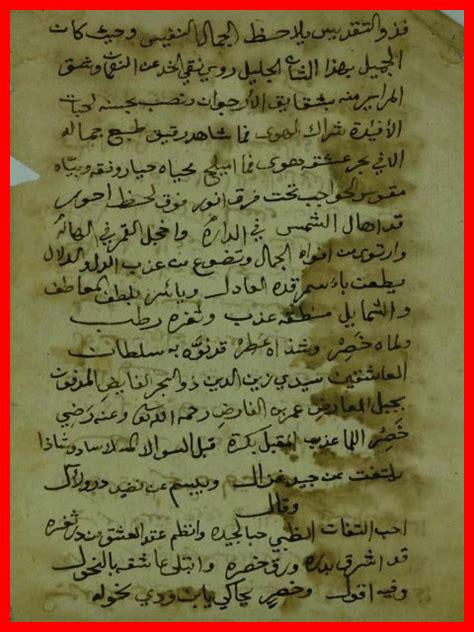 فذو التقديس يلاحظ الجمال النفيس وحيث كان
الجميل بهذا الشان الجليل روض نقي الخد عن النبات وشق
المراير منه بشقايق الأرجوان ونصب بحسنه لحبات
الأفئدة شراك الهوى فما شاهد رقيق طبع جماله
الا في بحر عشقه هوى فما اميلح محياه حيا رونقه وبياه
مقوس الحواجب تحت فرق انور فوق لحظ احور
قد اهال الشمس في الدارة واخجل القمر في الهالة
وارتوى من افواه الجمال وتضوع من عذب الدل والدلال
يطعن باسمر قده العادل وياسر بلطف المعاطف
والشمايل منطقه عذب وثغره رطب
ولماه خصر وشذاه عطر قد نوه به سلطان
العاشقين سيدي زين الدين ذو البحر الفايض المدفون
بجبل العارض عمر بن الفارض رحمه الله وعنه رضي
خصر اللما عذب المقبل بكرة قبل السواك المسك ساد وشاذا
يلتفت عن جيد غزال ويبسم عن نضيد در ولآل
وقال
احب التفات الظبي حبا لجيده وانظم عقد العشق من در ثغره
قد اشرق بدره ورق خصره وابتلى عاشقه بالنحول
وفيه اقول وخصر يحاكي يا بن ودي نحوله